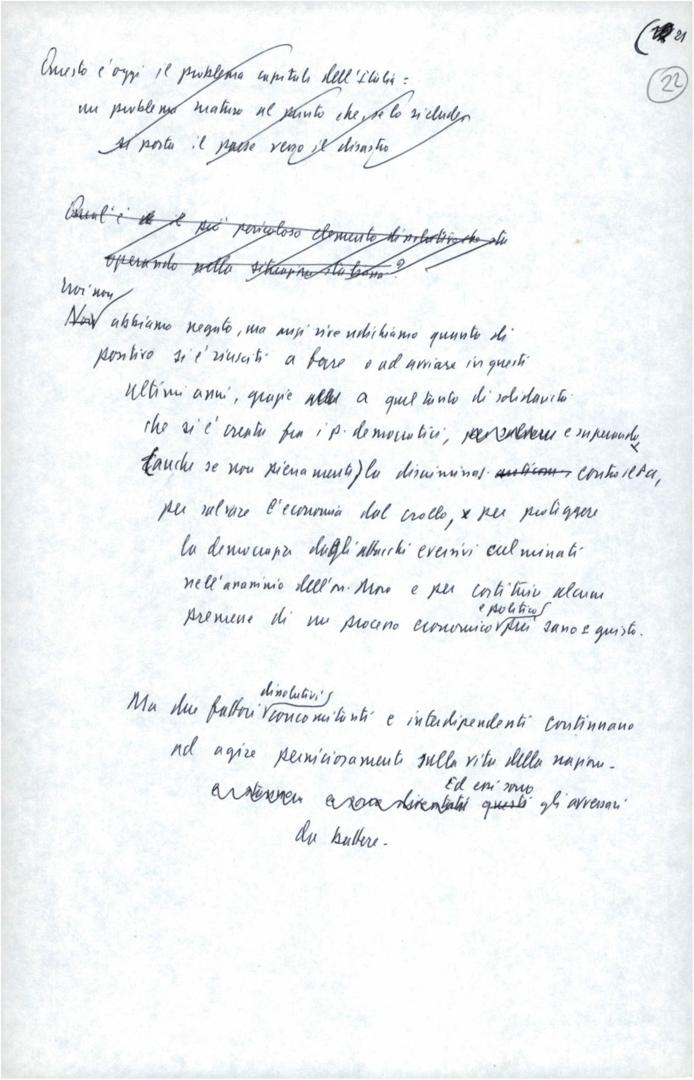 21
22
Questo è oggi il problema capitale dell'Italia:
un problema maturo al punto che, se lo si elude,
si porta il paese verso il disastro
Qual è il più pericoloso elemento dissolutivo che sta
operando nella situazione italiana?
Noi non
Noi abbiamo negato, ma anzi rivendichiamo quanto di
positivo si è riusciti a fare o ad avviare in questi
ultimi anni, grazie a quel tanto di solidarietà
che si è creata fra i p. democratici, e superando
(anche se non pienamente) la discriminaz. contro il PCI,
per salvare l'economia dal crollo, per proteggere
la democrazia dagli attacchi eversivi culminati
nell'assassinio dell'on. Moro e per costituire alcune
premesse di un processo economico e politico più sano e giusto.
Ma due fattori dissolutivi concomitanti e interdipendenti continuano
ad agire perniciosamente sulla vita della nazione.
Ed essi sono
questi gli avversari
da battere.